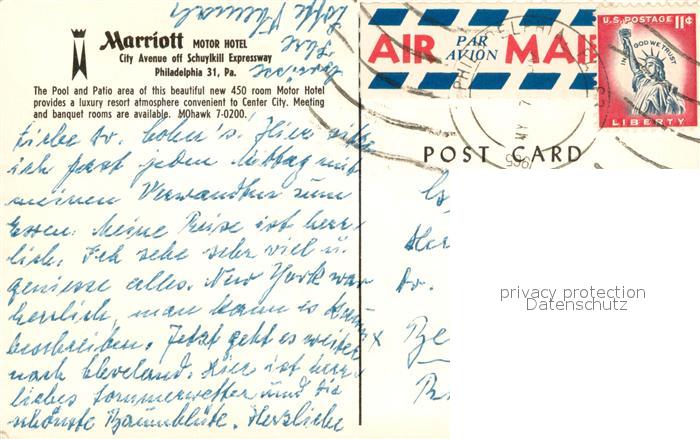 Marriott MOTOR HOTEL
City Avenue off Schuylkill Expressway
Philadelphia 31, Pa.
The Pool and Patio area of this beautiful new 450 room Motor Hotel
provides a luxury resort atmosphere convenient to Center City. Meeting
and banquet rooms are available. MOhawk 7-0200.
Liebe Dr. Cohn's! Hier
ich fast jeden Mittag mit
meinen Verwandten zum
Essen. Meine Reise ist herr-
lich. Ich sehe sehr viel u.
geniesse alles. New York war
herrlich, man kann es kaum
beschreiben. Jetzt geht es weiter
nach Cleveland. Hier ist herr-
liches Sommerwetter und die
schönste Baumblüte. Herzliche
Grüsse
Ihre
AIR PAR AVION MAIL
U.S. POSTAGE 11¢
IN GOD WE TRUST
LIBERTY
PHILADELPHIA
MY 7
1965
POST CARD
Dr.
privacy protection
Datenschutz